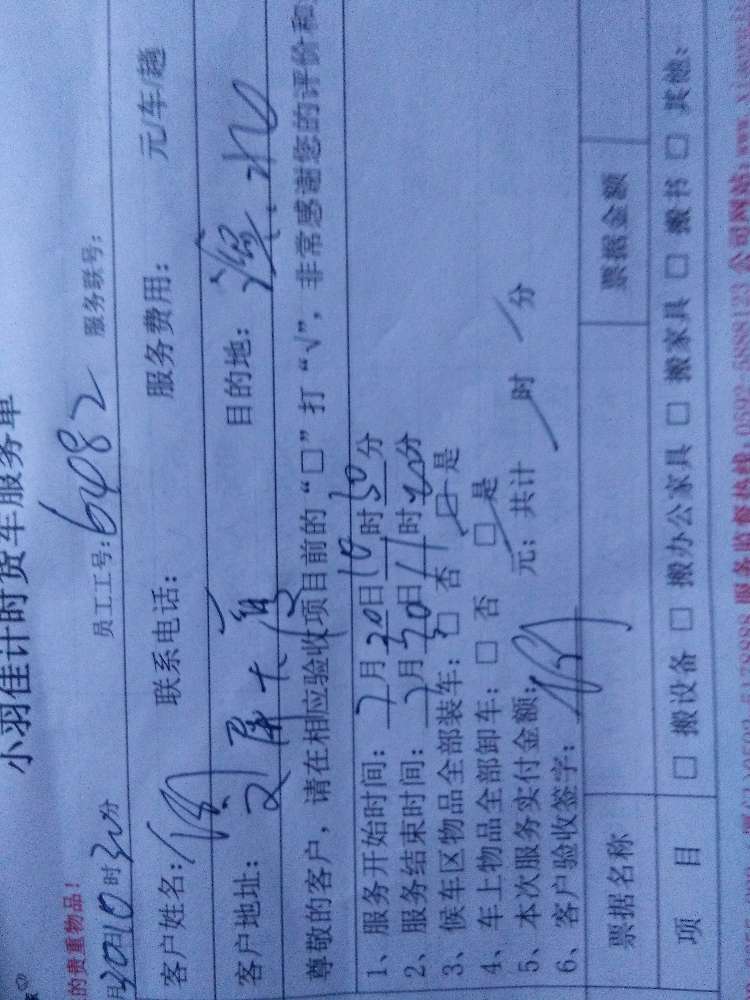 小羽佳计时货车服务单
的贵重物品!
员工工号: 6482 服务联号:
月30日10时30分
客户姓名: 联系电话: 服务费用: 元/车/趟
客户地址: 目的地:
尊敬的客户, 请在相应验收项目前的“□”打“√”, 非常感谢您的评价和
1、服务开始时间: 7月30日10时30分
2、服务结束时间: 7月30日11时分
3、候车区物品全部装车: □ 否 □ 是
4、车上物品全部卸车: □ 否 □ 是
5、本次服务实付金额: 元; 共计 时 分
6、客户验收签字:
票据名称 票据金额
项 目 □ 搬设备 □ 搬办公家具 □ 搬家具 □ 搬书 □ 其他:
服务监督热线: 公司网站: